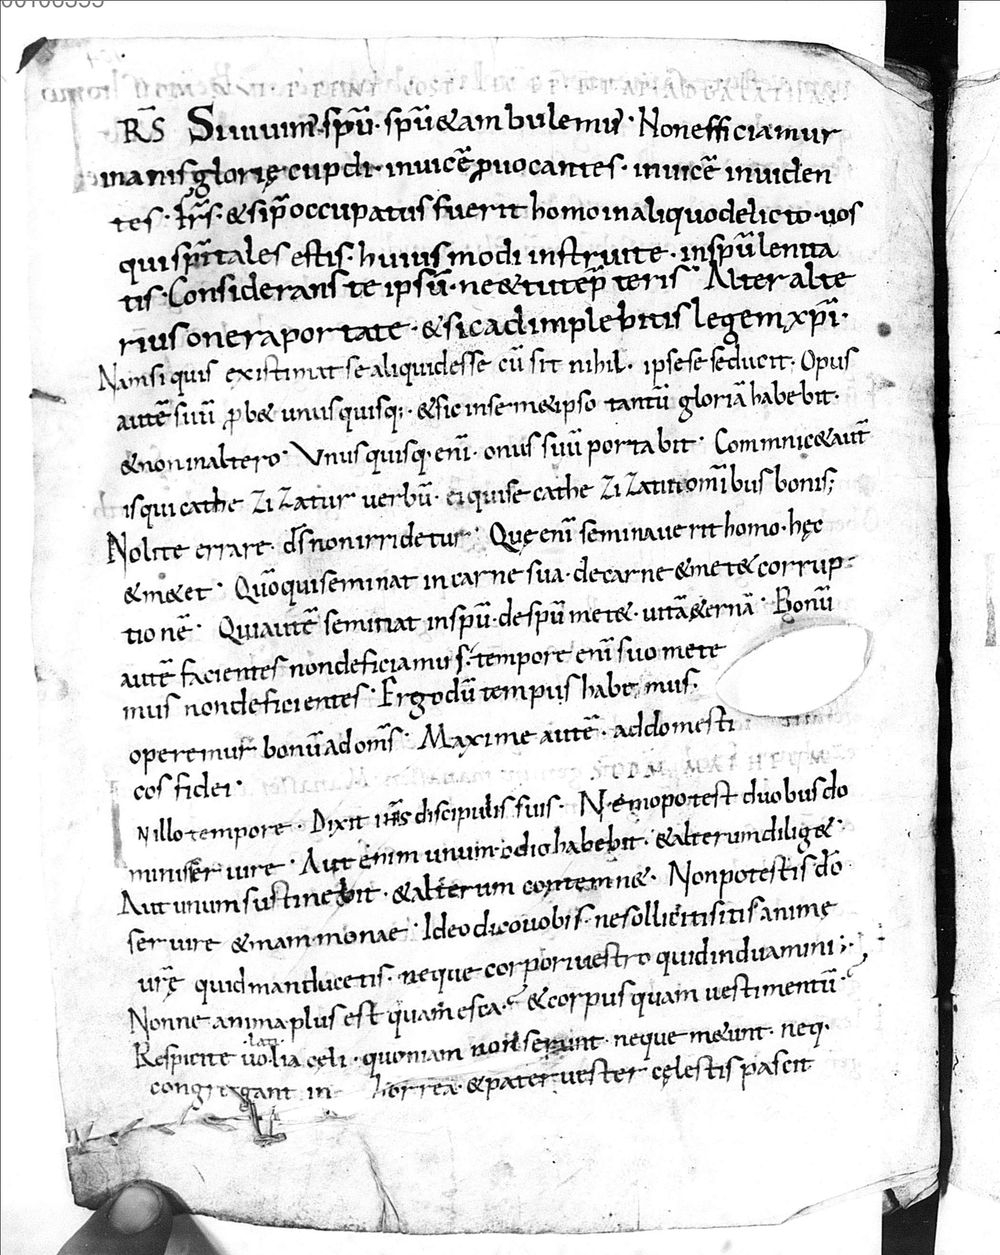 R̄S Siuiuim᷒ sp̄ū · sp̄ū & ambulemus · Non efficiamur
inanis glorię cupdi · inuicē ꝓuocantes · inuicē inuiden
tes · Fr̄s · & si p̄occupatus fuerit homo in aliquo delicto · uos
qui sp̄itales estis · huiusmodi instruite · in sp̄u lenita
tis · Considerans te ipsū · ne & tu tēp̄teris Alter alte
rius onera portate · & sic adimplebitis legem xp̄i ·
Nam si quis existimat se aliquid esse cū sit nihil · ipse se seducit · Opus
autē suū ꝓb& unusquisq; · & sic in sem&ipso tantū gloriā habebit ·
& non in altero · Vnusquisq · enī · onus suū portabit · Commnic& aut̄
is qui cathe zizatur uerbū · ei qui se cathe zizatit om̄ibus bonis;
Nolite errare · d̄s non irridetur · Quę enī seminauerit homo · hęc
& m&et · Quō qui seminat in carne sua · de carne & met& corrup
tionē · Qui autē seminat in sp̄ū · de sp̄ū met& · uitā &ernā · Bonū
autē facientes non deficiamus · tempore enī suo mete
mus non deficientes · Ergo dū tempus habemus ·
operemur bonū ad om̄s · Maxime autē · ad domesti
cos fidei ·
N illo tempore · Dixit ih̄s discipulis suis · Nemo potest duobus do
minis seruire · Aut enim unum odio habebit · & alterum dilig& ·
Aut unum sustinebit · & alterum contemn& · Non potestis dō
seruire & mammonae · Ideo dico uobis · ne solliciti sitis animę
ur̄ę quid manducetis · neque corpori uestro quid induamini ·
Nonne anima plus est quam esca · & corpus quam uestimentū
Respicite uolatilia cęli · quoniam non serunt · neque m&unt · neq ·
congregant in horrea · & pater uester cęlestis pascit